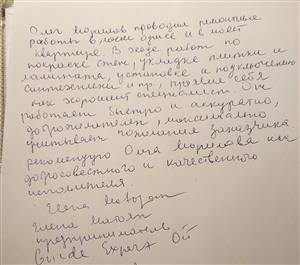 Олег Морилов проводил ремонтные
работы в моем офисе и в моей
квартире. В ходе работ по
покраске стен, укладке плитки и
ламината, установке и подключению
сантехники и пр., проявил себя
как хороший специалист. Он
работает быстро и аккуратно,
доброжелателен, максимально
учитывает пожелания заказчика
рекомендую Олега Морилова как
добросовестного и качественного
исполнителя.
Elena
Елена
предприниматель
Guide Expert OÜ